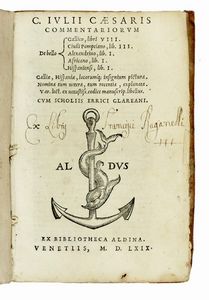 C. IVLII CÆSARIS
COMMENTARIORVM
De bello
Gallico, libri VIII.
Ciuili Pompeiano, lib. III.
Alexandrino, lib. I.
Africano, lib. I.
Hispaniensi, lib. I.
Galliæ, Hispaniæ, locorumq; insignium pictura,
Nomina cum vetera, tum recentia, explanata.
Var. lect. ex vetustiss. codice manuscrip. libellus.
CVM SCHOLIIS ERRICI GLAREANI.
Ex Libris Francisci
AL DVS
EX BIBLIOTHECA ALDINA.
VENETIIS, M. D. LXIX.